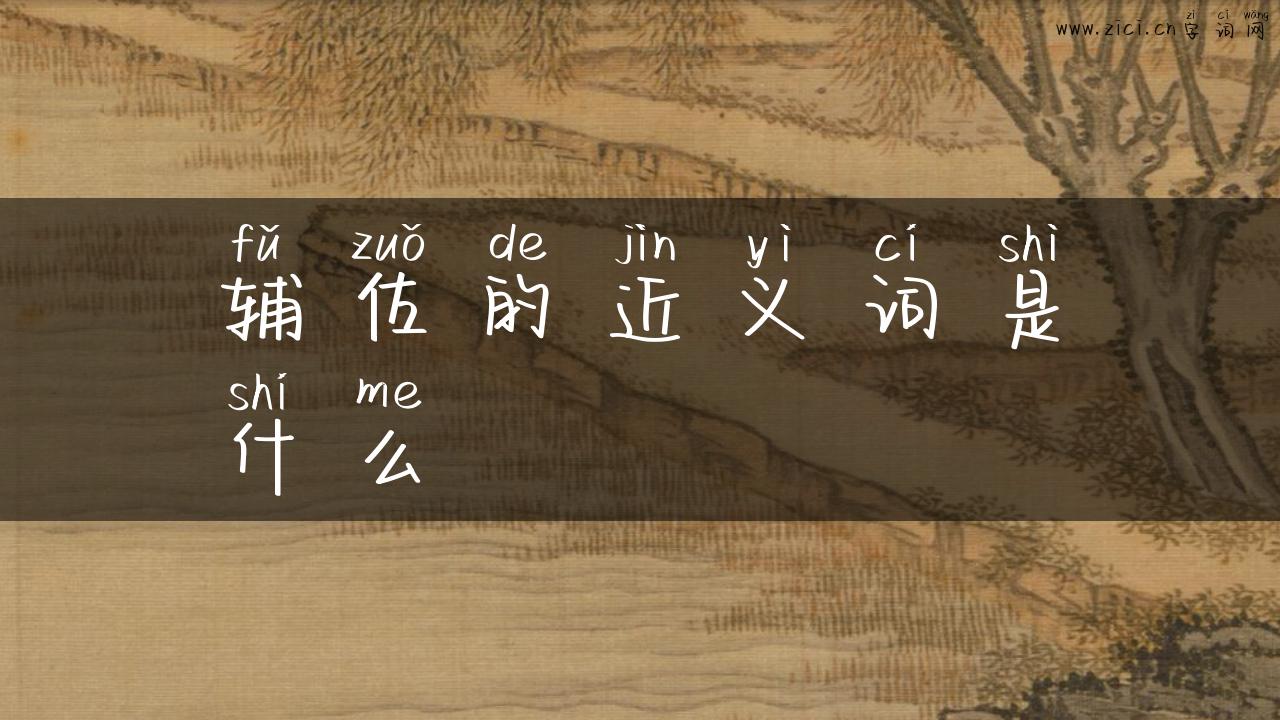 zì cí wǎng
www.zici.cn字词网
fǔ zuǒ de jìn yì cí shì
辅佐的近义词是
shí me
什么